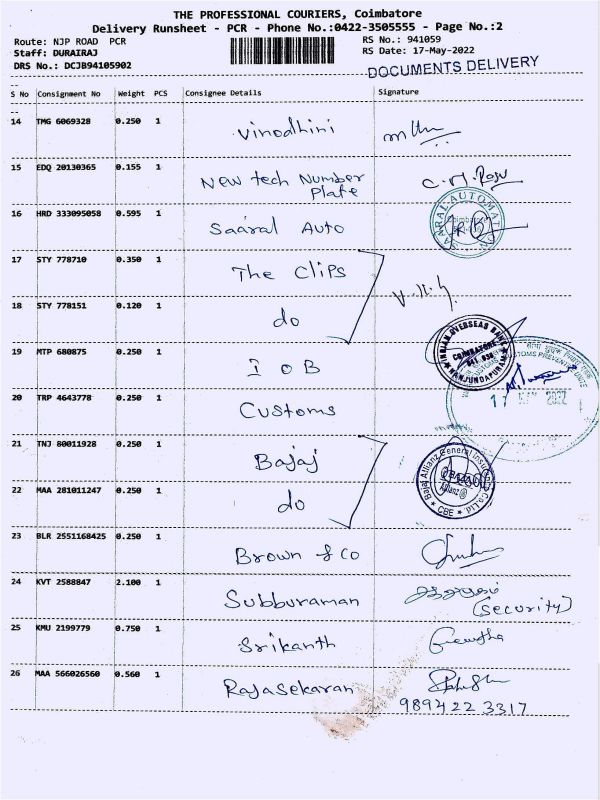 THE PROFESSIONAL COURIERS, Coimbatore
Delivery Runsheet - PCR - Phone No.:0422-3505555 - Page No.:2
Route: NJP ROAD PCR
RS No.: 941059
Staff: DURAIRAJ
RS Date: 17-May-2022
DRS No.: DCJB94105902
DOCUMENTS DELIVERY
S No Consignment No Weight PCS Consignee Details Signature
14 TMG 6069328 0.250 1 Vinodhini
15 EDQ 20130365 0.155 1 New tech Number Plate
16 HRD 333095058 0.595 1 Saaral Auto
SAARAL AUTOMAT
17 STY 778710 0.350 1 The Clips
18 STY 778151 0.120 1 do
19 MTP 680875 0.250 1 I O B
INDIAN OVERSEAS BANK
COIMBATORE
NANJUNDAPURAM
20 TRP 4643778 0.250 1 Customs
17 MAY 2022
21 TNJ 80011928 0.250 1 Bajaj
22 MAA 281011247 0.250 1 do
Bajaj Allianz General Insurance Co. Ltd.
* CBE *
23 BLR 2551168425 0.250 1 Brown & Co
24 KVT 2588847 2.100 1 Subburaman
(security)
25 KMU 2199779 0.750 1 Srikanth
26 MAA 566026560 0.560 1 Rajasekaran
9894223317